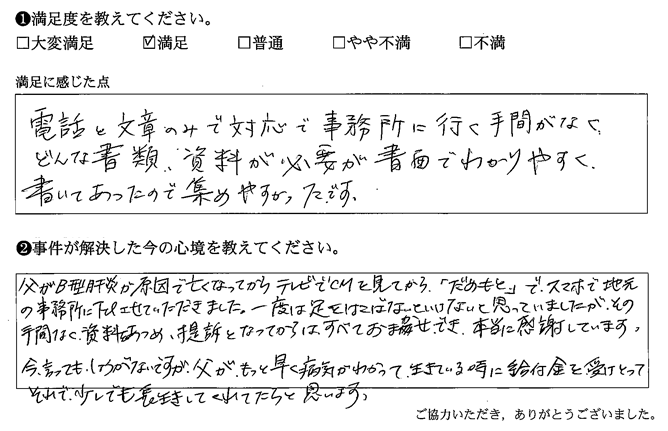 ❶満足度を教えてください。
□大変満足 ☑満足 □普通 □やや不満 □不満
満足に感じた点
電話と文章のみで対応で事務所に行く手間がなく、
どんな書類、資料が必要が書面でわかりやすく、
書いてあったので集めやすかったです。
❷事件が解決した今の心境を教えてください。
父がB型肝炎が原因で亡くなってからテレビでCMを見てから、「だめもと」で、スマホで地元
の事務所にTELさせていただきました。一度は足をはこばないといけないと思っていましたが、その
手間なく、資料をあつめ、提訴となってからはすべてお任せでき、本当に感謝しています。
今、言っても、しょうがないですが、父が、もっと早く病気がわかって、生きている時に給付金を受けとって
それで、少しでも長生きしてくれてたらと思います。
ご協力いただき，ありがとうございました。